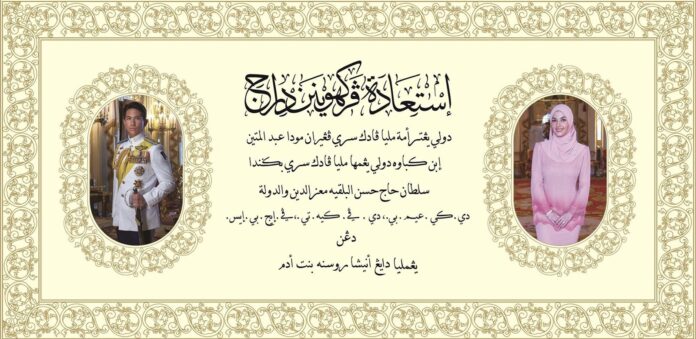 إستعادة ڤركهوينن دراج
دولي يڠتر أمة مليا ڤادك سري ڤڠيران مودا عبد المتين
إبن كباوه دولي يڠمها مليا ڤادك سري بڬيندا
سلطان حاج حسن البلقيه معز الدين والدولة
دي. كي. عيم. بي.، دي. ڤي. كيه. تي.، ڤي. إيچ. بي. إيس.
دڠن
يڠمليا دايڠ أنيشا روسنه بنت أدم